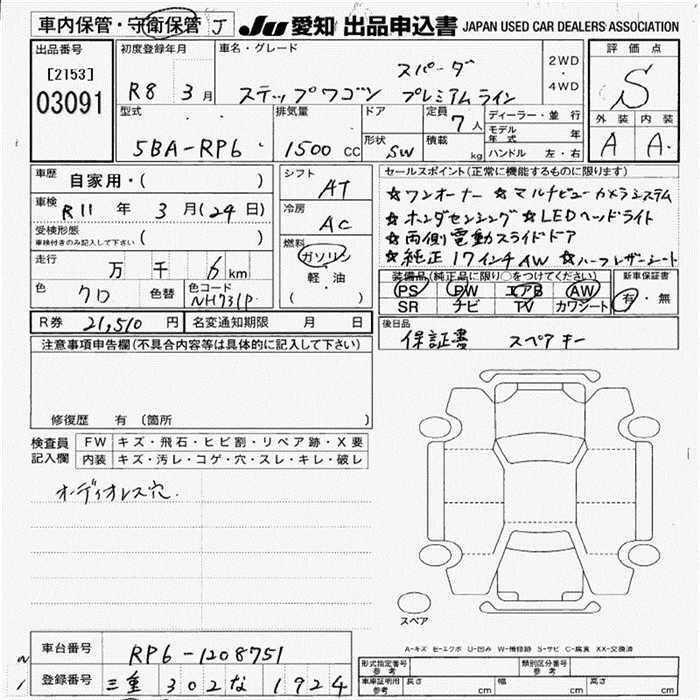 車内保管・守衛保管 J JU 愛知 出品申込書 JAPAN USED CAR DEALERS ASSOCIATION
出品番号 [2153] 03091
初度登録年月 R8 3月
車名・グレード ステップワゴン スパーダ プレミアムライン
2WD・4WD
評価点 S
外装 A 内装 A
型式 5BA-RP6
排気量 1500 CC
ドア
形状 SW
定員 7人
積載 kg
ディーラー・並行
モデル年式 年
ハンドル 左・右
車歴 自家用・( )
車検 R11年 3月(24日)
受検形態 車検付きのみ記入して下さい ( )
走行 万 千 6 km
色 クロ 色替 色コード NH731P
シフト AT
冷房 AC
燃料 ガソリン 軽・油 ( )
R券 21,510 円 名変通知期限 月 日
セールスポイント(正常に機能するものに限ります)
☆ワンオーナー ☆マルチビューカメラシステム
☆ホンダセンシング ☆LEDヘッドライト
☆両側電動スライドドア
☆純正17インチAW ☆ハーフレザーシート
装備品(純正品に限り○をつけてください) 新車保証書
PS PW エアB AW 有・無
SR ナビ TV カワシート
後日品 保証書 スペアキー
注意事項申告欄(不具合内容等は具体的に記入して下さい)
修復歴 有 (箇所 )
検査員記入欄
FW キズ・飛石・ヒビ割・リペア跡・X要
内装 キズ・汚レ・コゲ・穴・スレ・キレ・破レ
オーディオレス穴.
スペア
A-キズ E-エクボ U-凹み W-補修跡 S-サビ C-腐食 XX-交換済
車台番号 RP6-1208751
登録番号 三重 302 な 1924
形式指定番号 参考 類別区分番号 参考
車庫証明用 参考 長さ cm 幅 cm 高さ cm